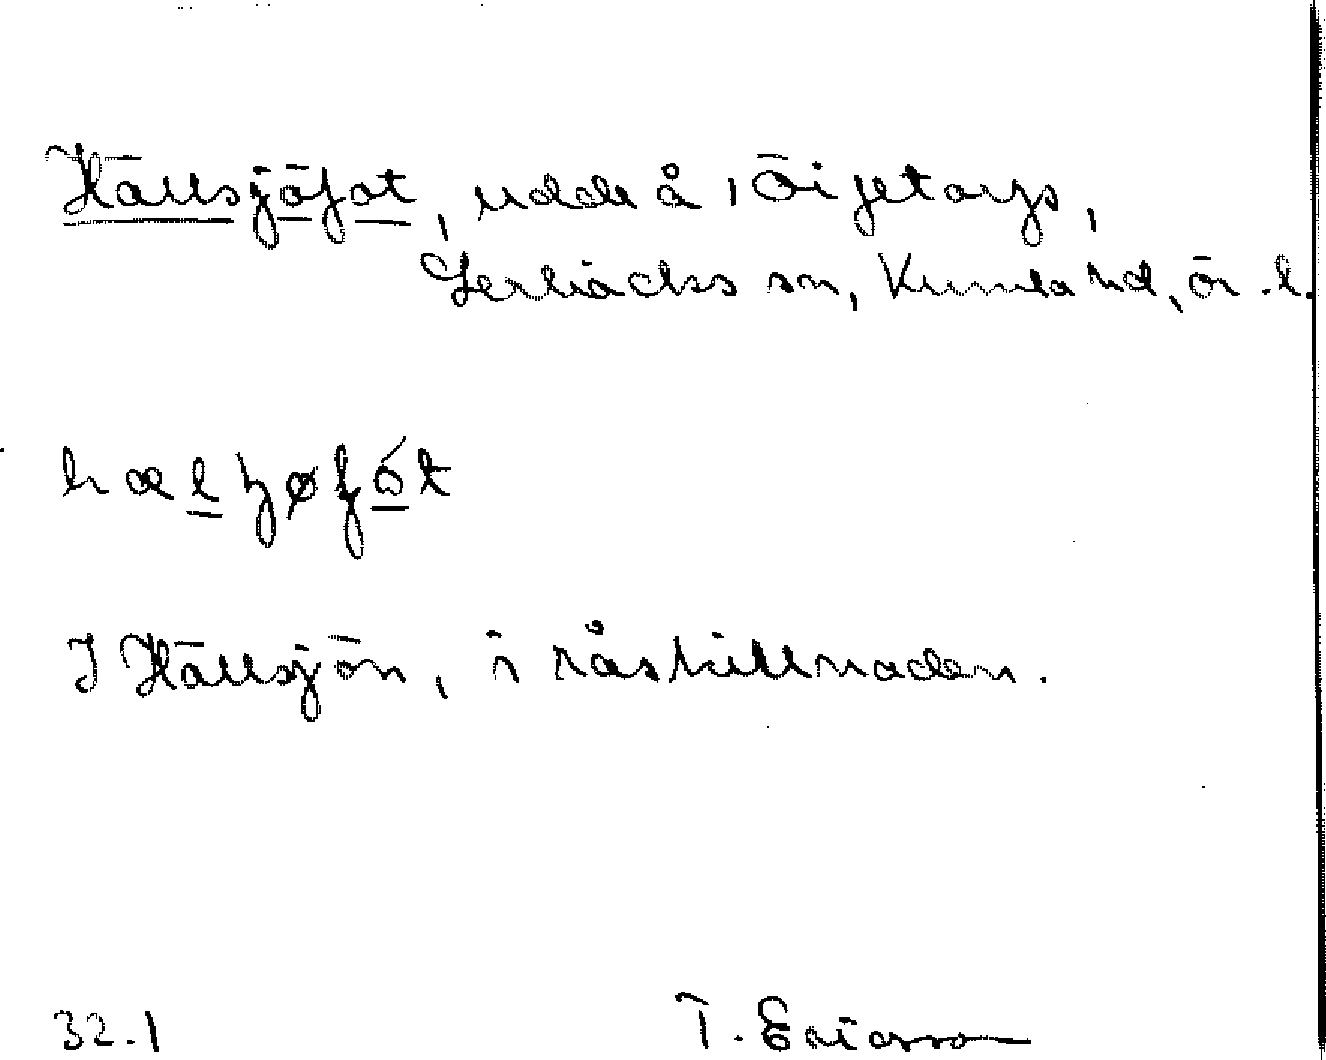 Hällsjöfot, udde å, Öijetorps,
Lerbäcks sn, Kumla hd, ör. l.
hælʒøfót
I Hällsjön, i råskillnaden.
32.1 T. Ericsson